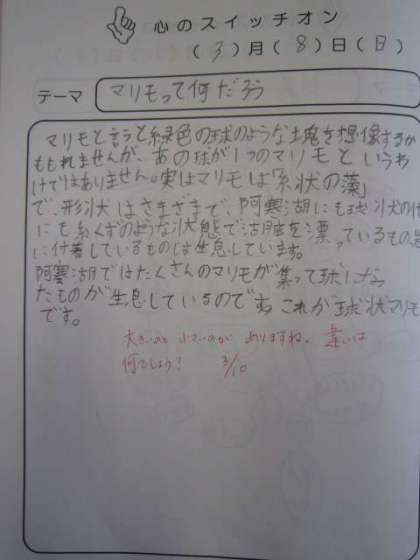 心のスイッチオン
(3)月(8)日(日)
テーマ マリモって何だろう
マリモと言うと緑色の球のような土塊を想像するか
もしれませんが、あの球が1つのマリモというわ
けではありません。実はマリモは「糸状の藻」
で、形状はさまざまで、阿寒湖にも球状の
にも糸くずのような状態で湖底を漂っているもの
に付着しているものは生息しています。
阿寒湖ではたくさんのマリモが集って球になっ
たものが生息しているのです。これが球状マリモ
です。
大きいのと小さいのが ありますね。違いは
何でしょう? 3/10